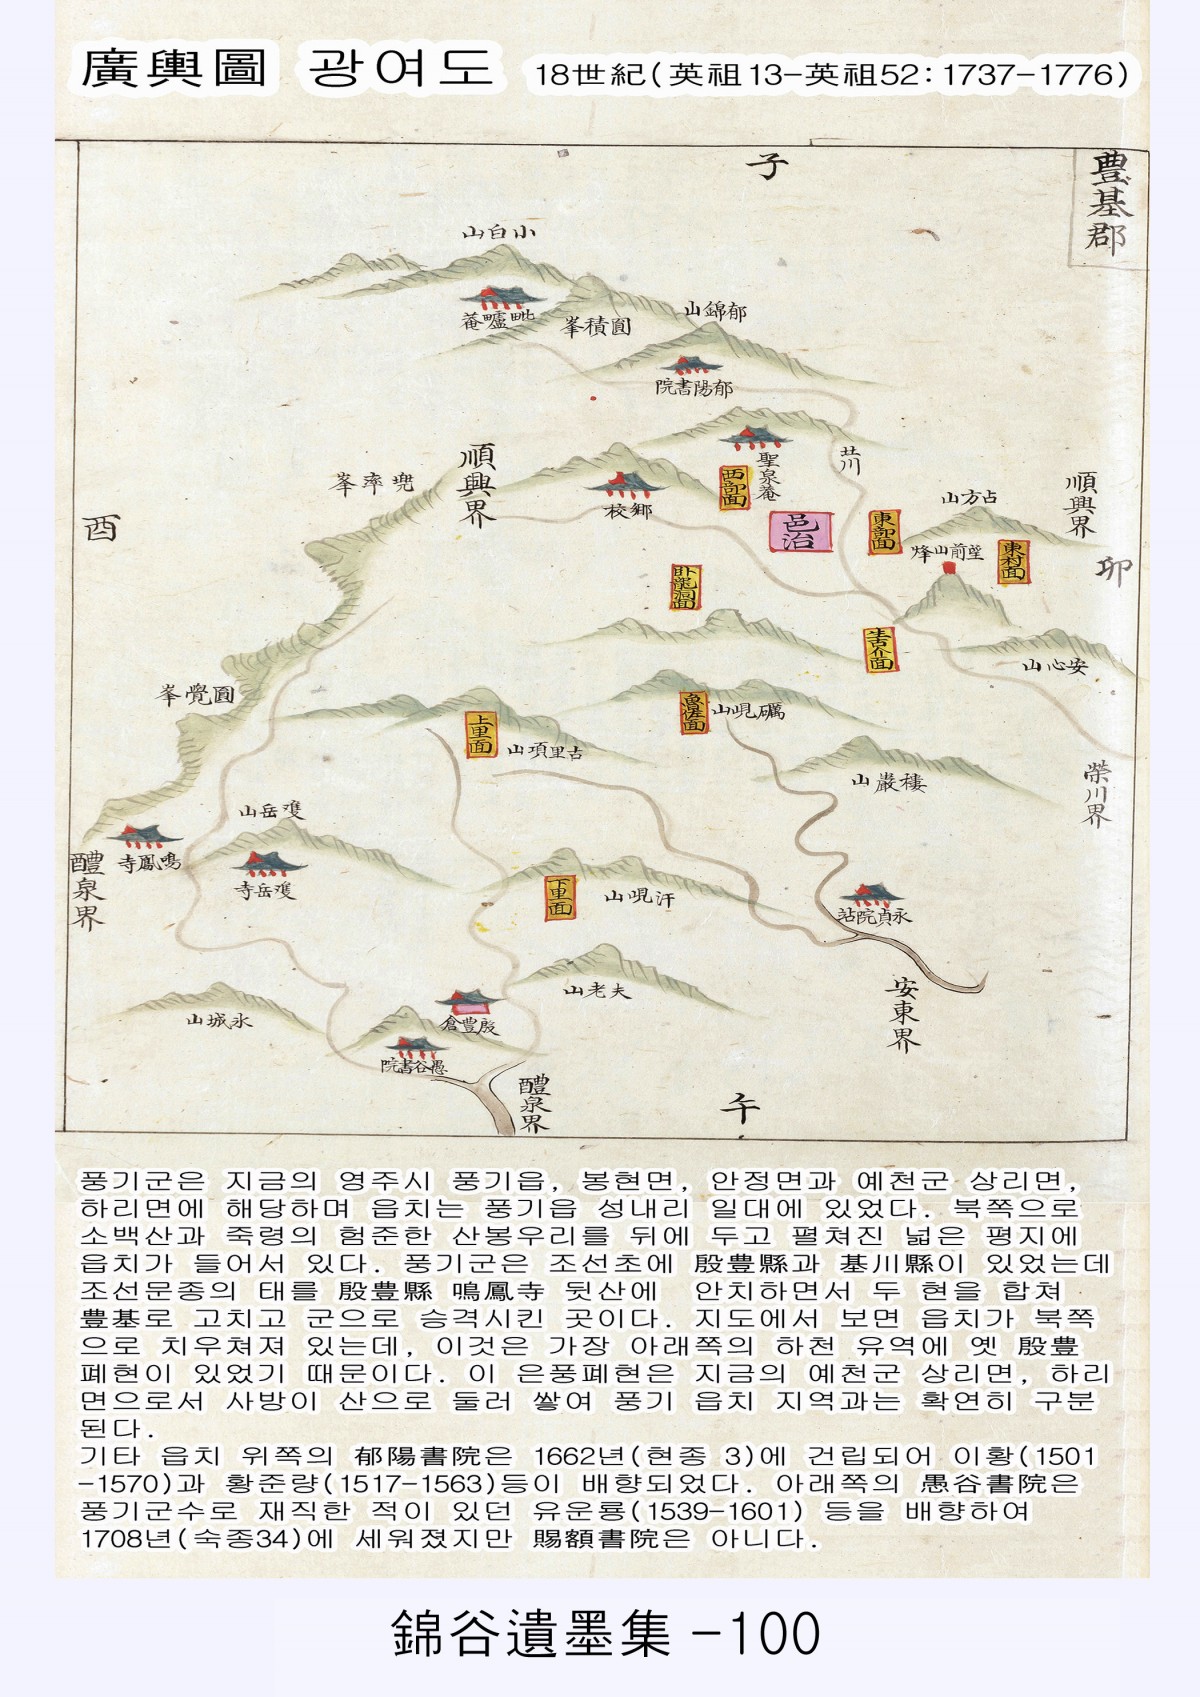 廣輿圖 광여도 18世紀(英祖13-英祖52:1737-1776)
子
豊基郡
小白山
毗盧菴
圓積峯
郁錦山
郁陽書院
聖泉菴
西部面
邑治
東部面
占方山
望前山烽
東村面
順興界
卯
兠率峯
順興界
鄕校
酉
卧龍洞面
生古介面
安心山
圓覺峯
魯佐面
礪峴山
上里面
古里項山
樓巖山
榮川界
鳴鳳寺
醴泉界
下里面
汗峴山
永貞院站
安東界
夫老山
殷豊倉
愚谷書院
醴泉界
午
풍기군은 지금의 영주시 풍기읍, 봉현면, 안정면과 예천군 상리면,
하리면에 해당하며 읍치는 풍기읍 성내리 일대에 있었다. 북쪽으로
소백산과 죽령의 험준한 산봉우리를 뒤에 두고 펼쳐진 넓은 평지에
읍치가 들어서 있다. 풍기군은 조선초에 殷豊縣과 基川縣이 있었는데
조선문종의 태를 殷豊縣 鳴鳳寺 뒷산에 안치하면서 두 현을 합쳐
豊基로 고치고 군으로 승격시킨 곳이다. 지도에서 보면 읍치가 북쪽
으로 치우쳐져 있는데, 이것은 가장 아래쪽의 하천 유역에 옛 殷豊
폐현이 있었기 때문이다. 이 은풍폐현은 지금의 예천군 상리면, 하리
면으로서 사방이 산으로 둘러 쌓여 풍기 읍치 지역과는 확연히 구분
된다.
기타 읍치 위쪽의 郁陽書院은 1662년(현종 3)에 건립되어 이황(1501
-1570)과 황준량(1517-1563)등이 배향되었다. 아래쪽의 愚谷書院은
풍기군수로 재직한 적이 있던 유운룡(1539-1601) 등을 배향하여
1708년(숙종34)에 세워졌지만 賜額書院은 아니다.
錦谷遺墨集 -100